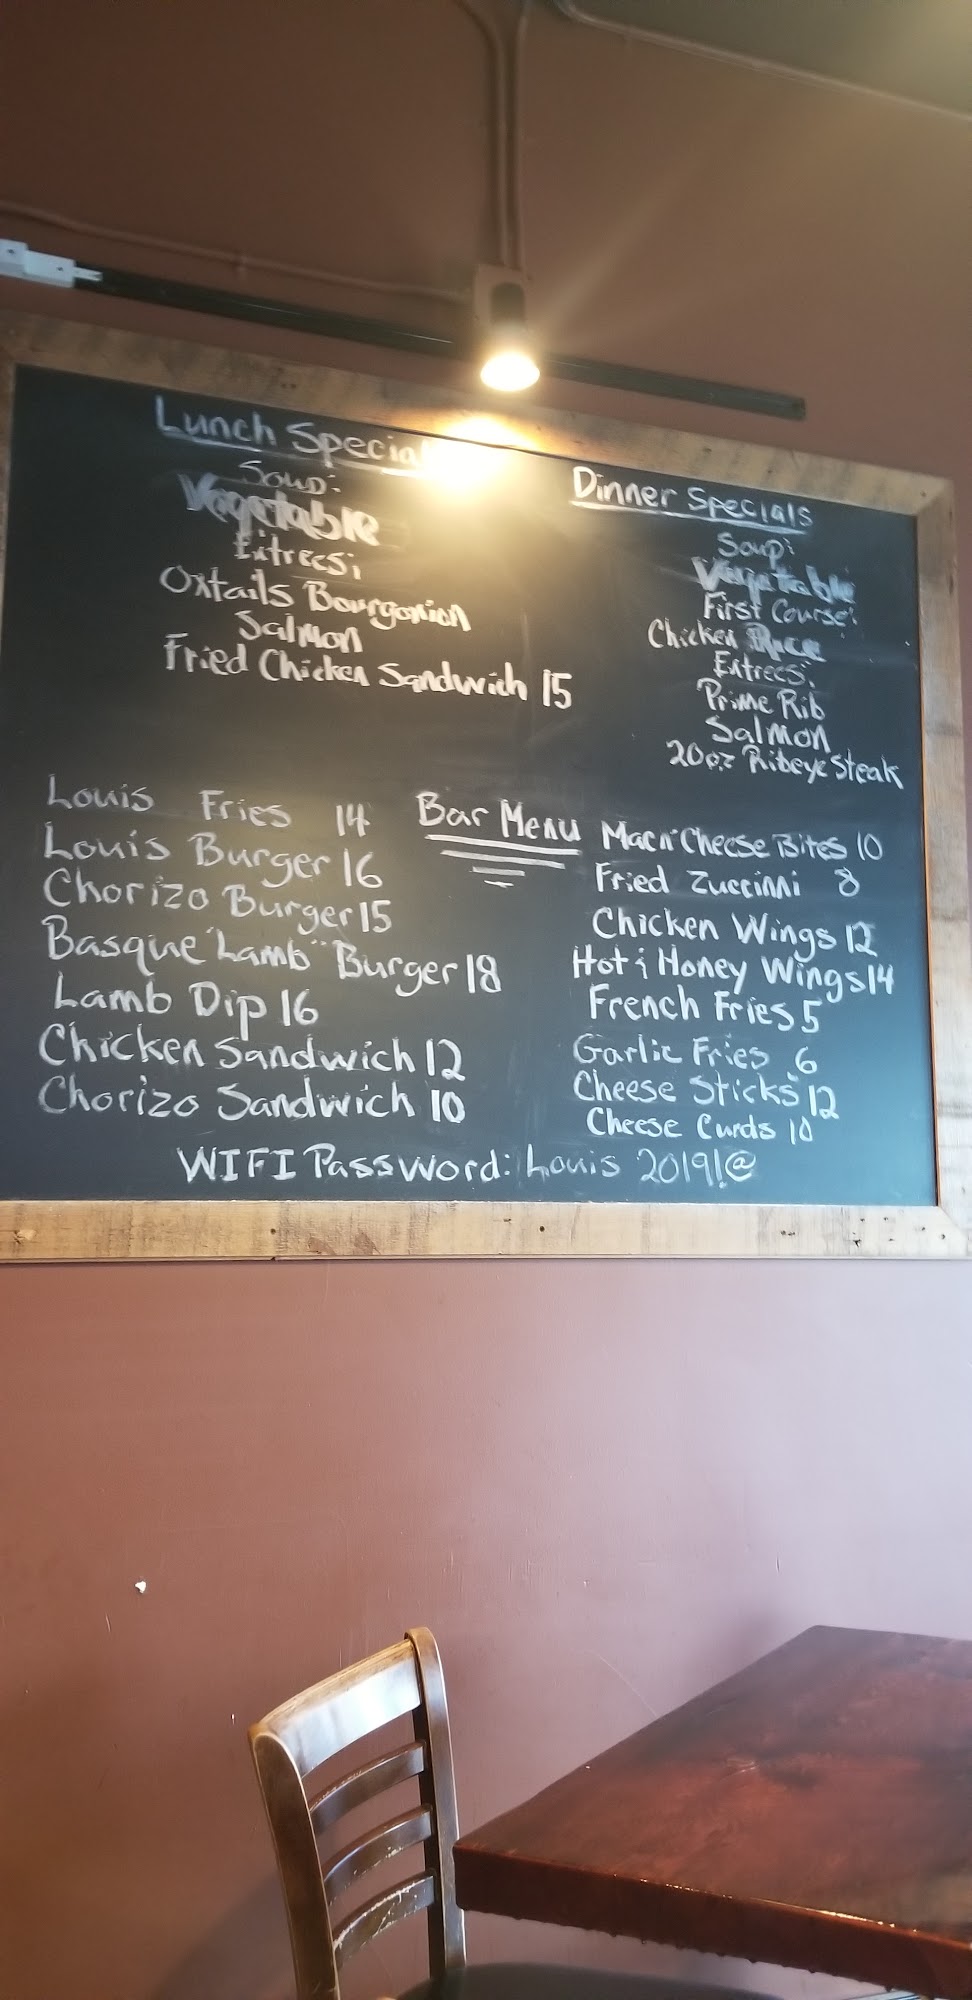 Lunch Specials
Soup:
Vegetable
Entrees:
Oxtails Bourgonion
Salmon
Fried Chicken Sandwich 15
Dinner Specials
Soup:
Vegetable
First Course:
Chicken Rice
Entrees:
Prime Rib
Salmon
20 oz Ribeye Steak
Bar Menu
Louis Fries 14
Louis Burger 16
Chorizo Burger 15
Basque "Lamb" Burger 18
Lamb Dip 16
Chicken Sandwich 12
Chorizo Sandwich 10
Mac n' Cheese Bites 10
Fried Zuccinni 8
Chicken Wings 12
Hot & Honey Wings 14
French Fries 5
Garlic Fries 6
Cheese Sticks 12
Cheese Curds 10
WIFI Password: Louis 2019!@